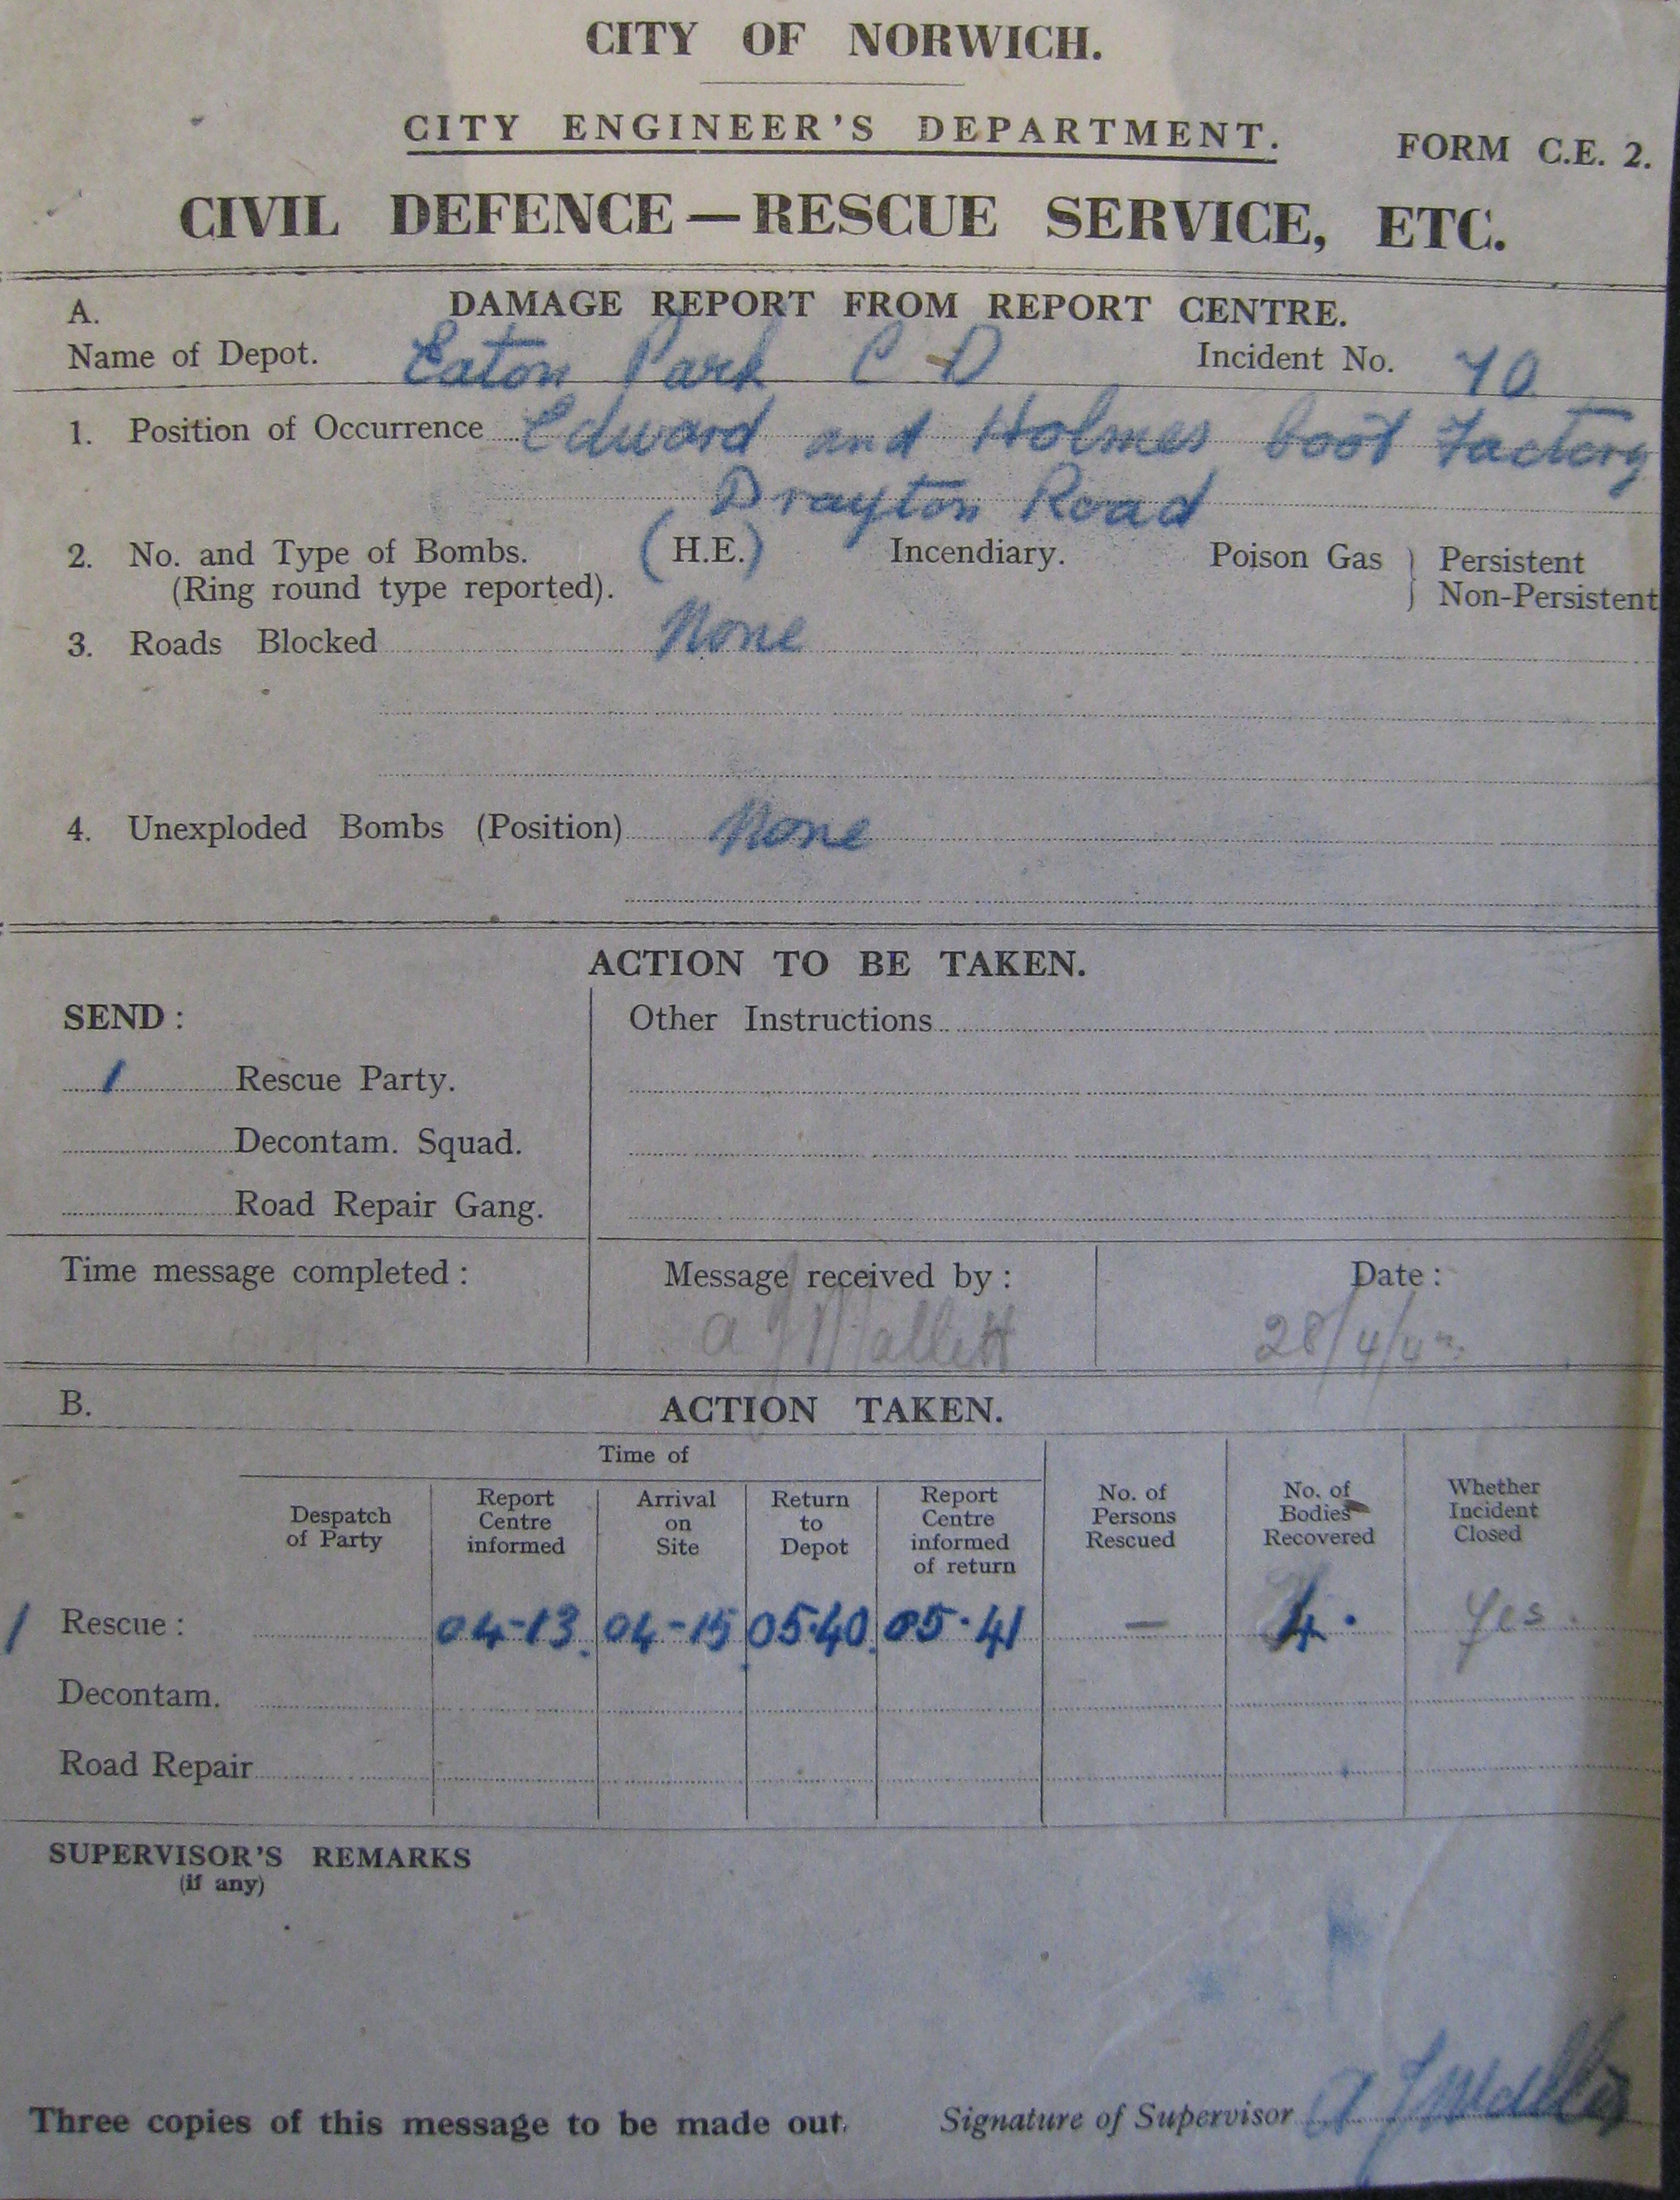 CITY OF NORWICH.
CITY ENGINEER'S DEPARTMENT.
FORM C.E. 2.
CIVIL DEFENCE — RESCUE SERVICE, ETC.
A. DAMAGE REPORT FROM REPORT CENTRE.
Name of Depot. Eaton Park C D Incident No. 70
1. Position of Occurrence Edward and Holmes boot Factory
Drayton Road
2. No. and Type of Bombs. (H.E.) Incendiary. Poison Gas } Persistent
(Ring round type reported). Non-Persistent
3. Roads Blocked None
4. Unexploded Bombs (Position) None
ACTION TO BE TAKEN.
SEND : Other Instructions
1 Rescue Party.
Decontam. Squad.
Road Repair Gang.
Time message completed : Message received by : Date :
A J Mallett 28/4/42.
B. ACTION TAKEN.
Time of
Despatch of Party
Report Centre informed
Arrival on Site
Return to Depot
Report Centre informed of return
No. of Persons Rescued
No. of Bodies Recovered
Whether Incident Closed
1 Rescue : 04-13. 04-15 05.40. 05.41 — 4. Yes.
Decontam.
Road Repair
SUPERVISOR'S REMARKS
(if any)
Three copies of this message to be made out. Signature of Supervisor A J Mallett